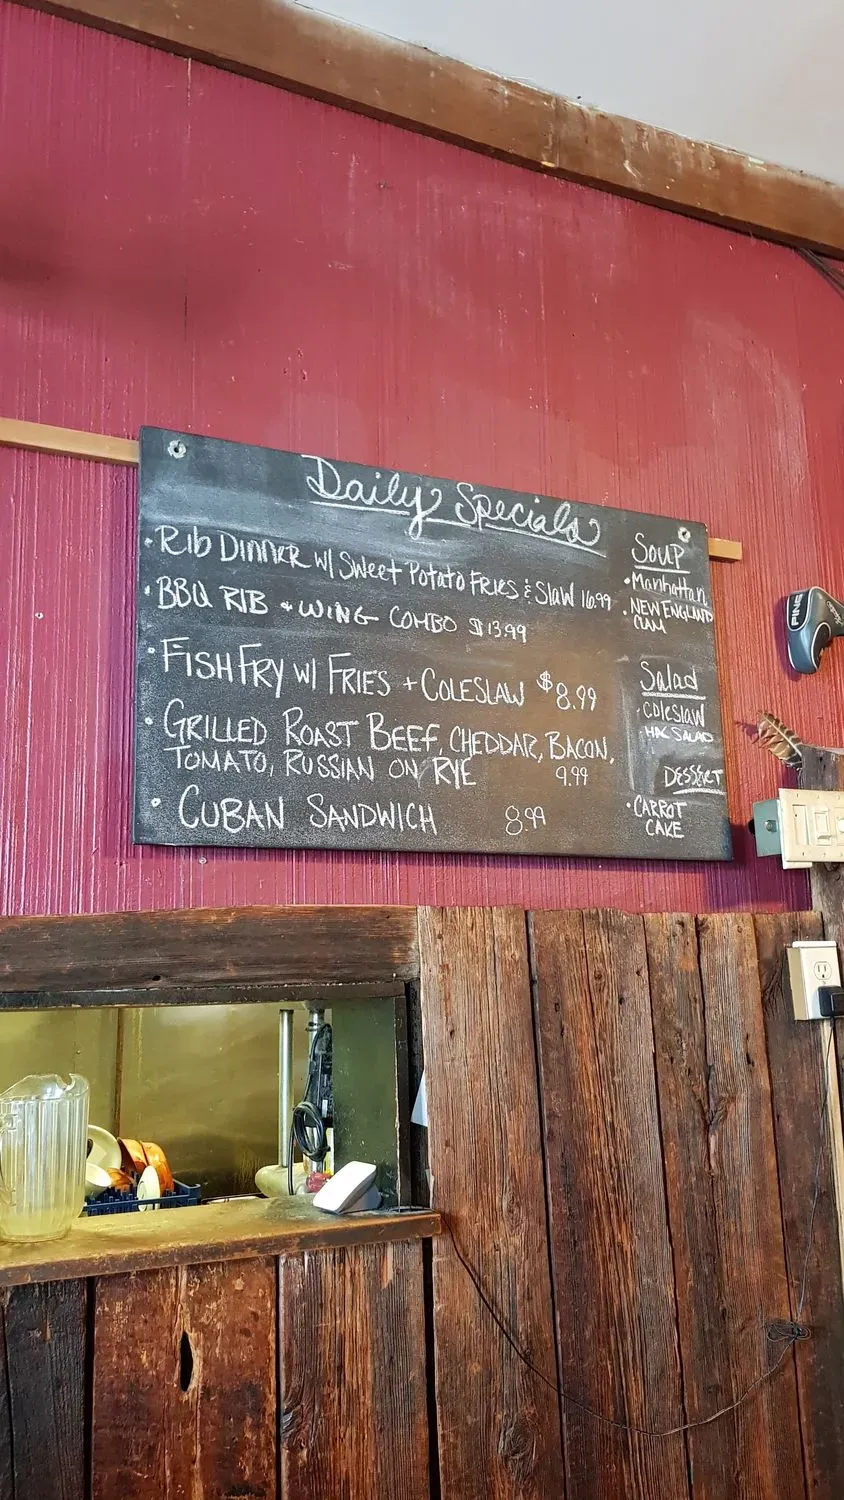 Daily Specials
• RIB DINNER W/ SWEET POTATO FRIES & SLAW 16.99
• BBQ RIB + WING COMBO $13.99
• FISH FRY W/ FRIES + COLESLAW $8.99
• GRILLED ROAST BEEF, CHEDDAR, BACON,
TOMATO, RUSSIAN ON RYE 9.99
• CUBAN SANDWICH 8.99
SOUP
• Manhattan
• NEW ENGLAND
CLAM
Salad
• COLESLAW
SALAD
DESSERT
• CARROT
CAKE
PING